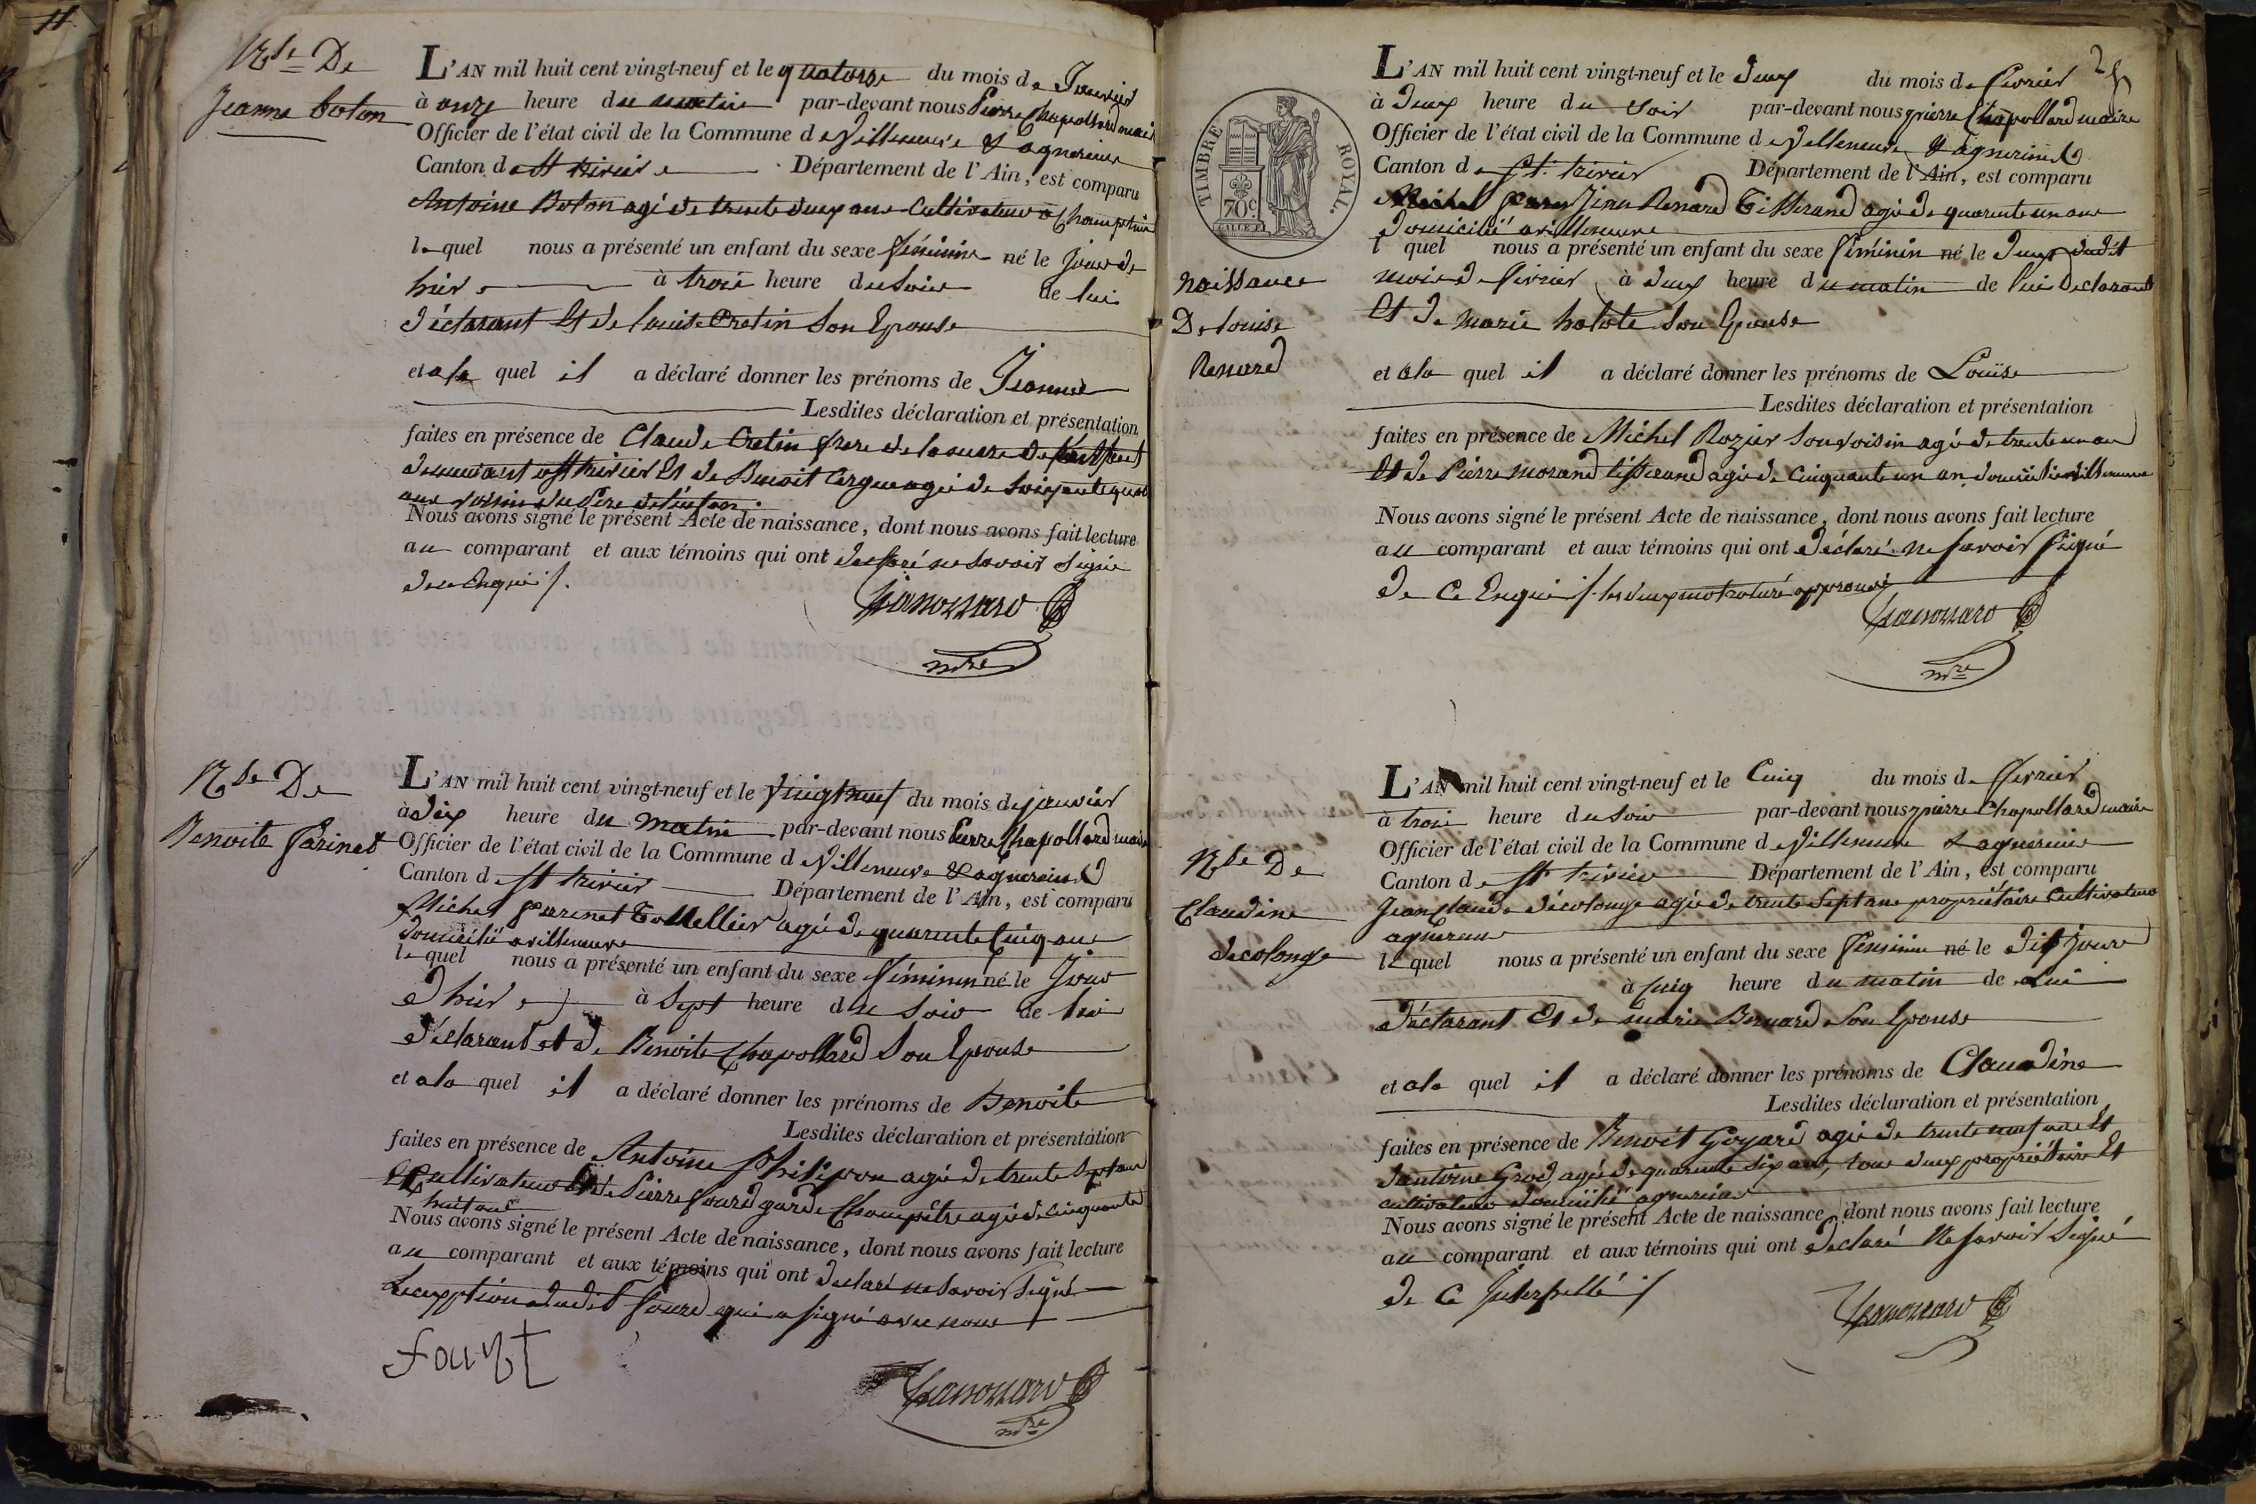 11
Nce De
Jeanne Boton
L'AN mil huit cent vingt-neuf et le quatorze du mois de Janvier
à onze heure du matin par-devant nous Pierre Chapollard maire
Officier de l'état civil de la Commune de Villeneuve & agnereins
Canton de St trivier Département de l'Ain, est comparu
Antoine Boton agé de trente deux ans Cultivateur a
le quel nous a présenté un enfant du sexe féminin né le Jour de
hier à trois heure du Soir de lui
déclarant Et de louise Cretin Son Epouse
et a la quel il a déclaré donner les prénoms de Jeanne
Lesdites déclaration et présentation
faites en présence de Claude Cretin frere de la mere de l'enfant
demeurant a St trivier Et de Benoit agé de Soixante quatre
ans voisin du Pere de l'enfant.
Nous avons signé le présent Acte de naissance, dont nous avons fait lecture
au comparant et aux témoins qui ont declaré ne Savoir Signé
de ce Enquis /.
Chapollard
mre
Nce De
Benoite Farinet
L'AN mil huit cent vingt-neuf et le vingt neuf du mois de janvier
à dix heure du matin par-devant nous Pierre Chapollard maire
Officier de l'état civil de la Commune de Villeneuve & agnereins
Canton de St trivier Département de l'Ain, est comparu
Michel farinet agé de quarente Cinq ans
domicilié a villeneuve
le quel nous a présenté un enfant du sexe féminin né le Jour
d'hier à Sept heure du Soir de lui
déclarant et de Benoite Chapollard Son Epouse
et a la quel il a déclaré donner les prénoms de Benoite
Lesdites déclaration et présentation
faites en présence de Antoine Philippon agé de trente Sept ans
Cultivateur Et de Pierre fourd garde Champêtre agé de cinquante
huit ans
Nous avons signé le présent Acte de naissance, dont nous avons fait lecture
au comparant et aux témoins qui ont declaré ne Savoir Signé
a l'exception dudit fourd qui a signé avec nous
Chapollard
mre
2
TIMBRE ROYAL.
70c
L'AN mil huit cent vingt-neuf et le deux du mois de fevrier
à deux heure du soir par-devant nous pierre Chapollard maire
Officier de l'état civil de la Commune de villeneuve & agnereins
Canton de St. trivier Département de l'Ain, est comparu
Jean Renard Tisserand agé de quarente un ans
domicilié a villeneuve
l quel nous a présenté un enfant du sexe féminin né le deux dudit
mois de fevrier à deux heure du matin de lui Declarant
Et de marie Son Epouse
naissance
De louise
Renard
et a la quel il a déclaré donner les prénoms de Louise
Lesdites déclaration et présentation
faites en présence de Michel Rozier Son voisin agé de trente un an
Et de Pierre morand tisserand agé de Cinquante un an domicilié a villeneuve
Nous avons signé le présent Acte de naissance, dont nous avons fait lecture
au comparant et aux témoins qui ont déclaré ne savoir signé
de Ce Enquis /. les deux mot raturé approuvé
Chapollard
mre
Nce De
Claudine
decolonge
L'AN mil huit cent vingt-neuf et le Cinq du mois de fevrier
à trois heure du Soir par-devant nous pierre Chapollard maire
Officier de l'état civil de la Commune de villeneuve & agnereins
Canton de St trivier Département de l'Ain, est comparu
Jean Claude décolonge agé de trente Sept ans propriétaire Cultivateur
agnereins
le quel nous a présenté un enfant du sexe féminin né le dit jour
à Cinq heure du matin de Lui
déclarant Et de marie Bernard Son Epouse
et a la quel il a déclaré donner les prénoms de Claudine
Lesdites déclaration et présentation
faites en présence de Benoit Goyard agé de trente neuf ans Et
d'antoine agé de quarente Six ans, tous deux propriétaire Et
cultivateur domicilié agnereins
Nous avons signé le présent Acte de naissance, dont nous avons fait lecture
au comparant et aux témoins qui ont declaré Ne Savoir Signé
de Ce Interpellé /
Chapollard